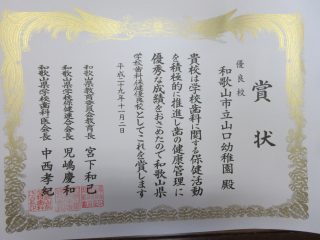 賞状
優良校
和歌山市立山口幼稚園殿
貴校は学校歯科に関する保健活動
を積極的に推進し歯の健康管理に
優秀な成績をおさめたので和歌山県
学校歯科保健優良校としてこれを賞します
平成二十九年十一月二日
和歌山県教育委員会教育長 宮下和己
和歌山県学校保健連合会長 児嶋慶和
和歌山県学校歯科医会長 中西孝紀